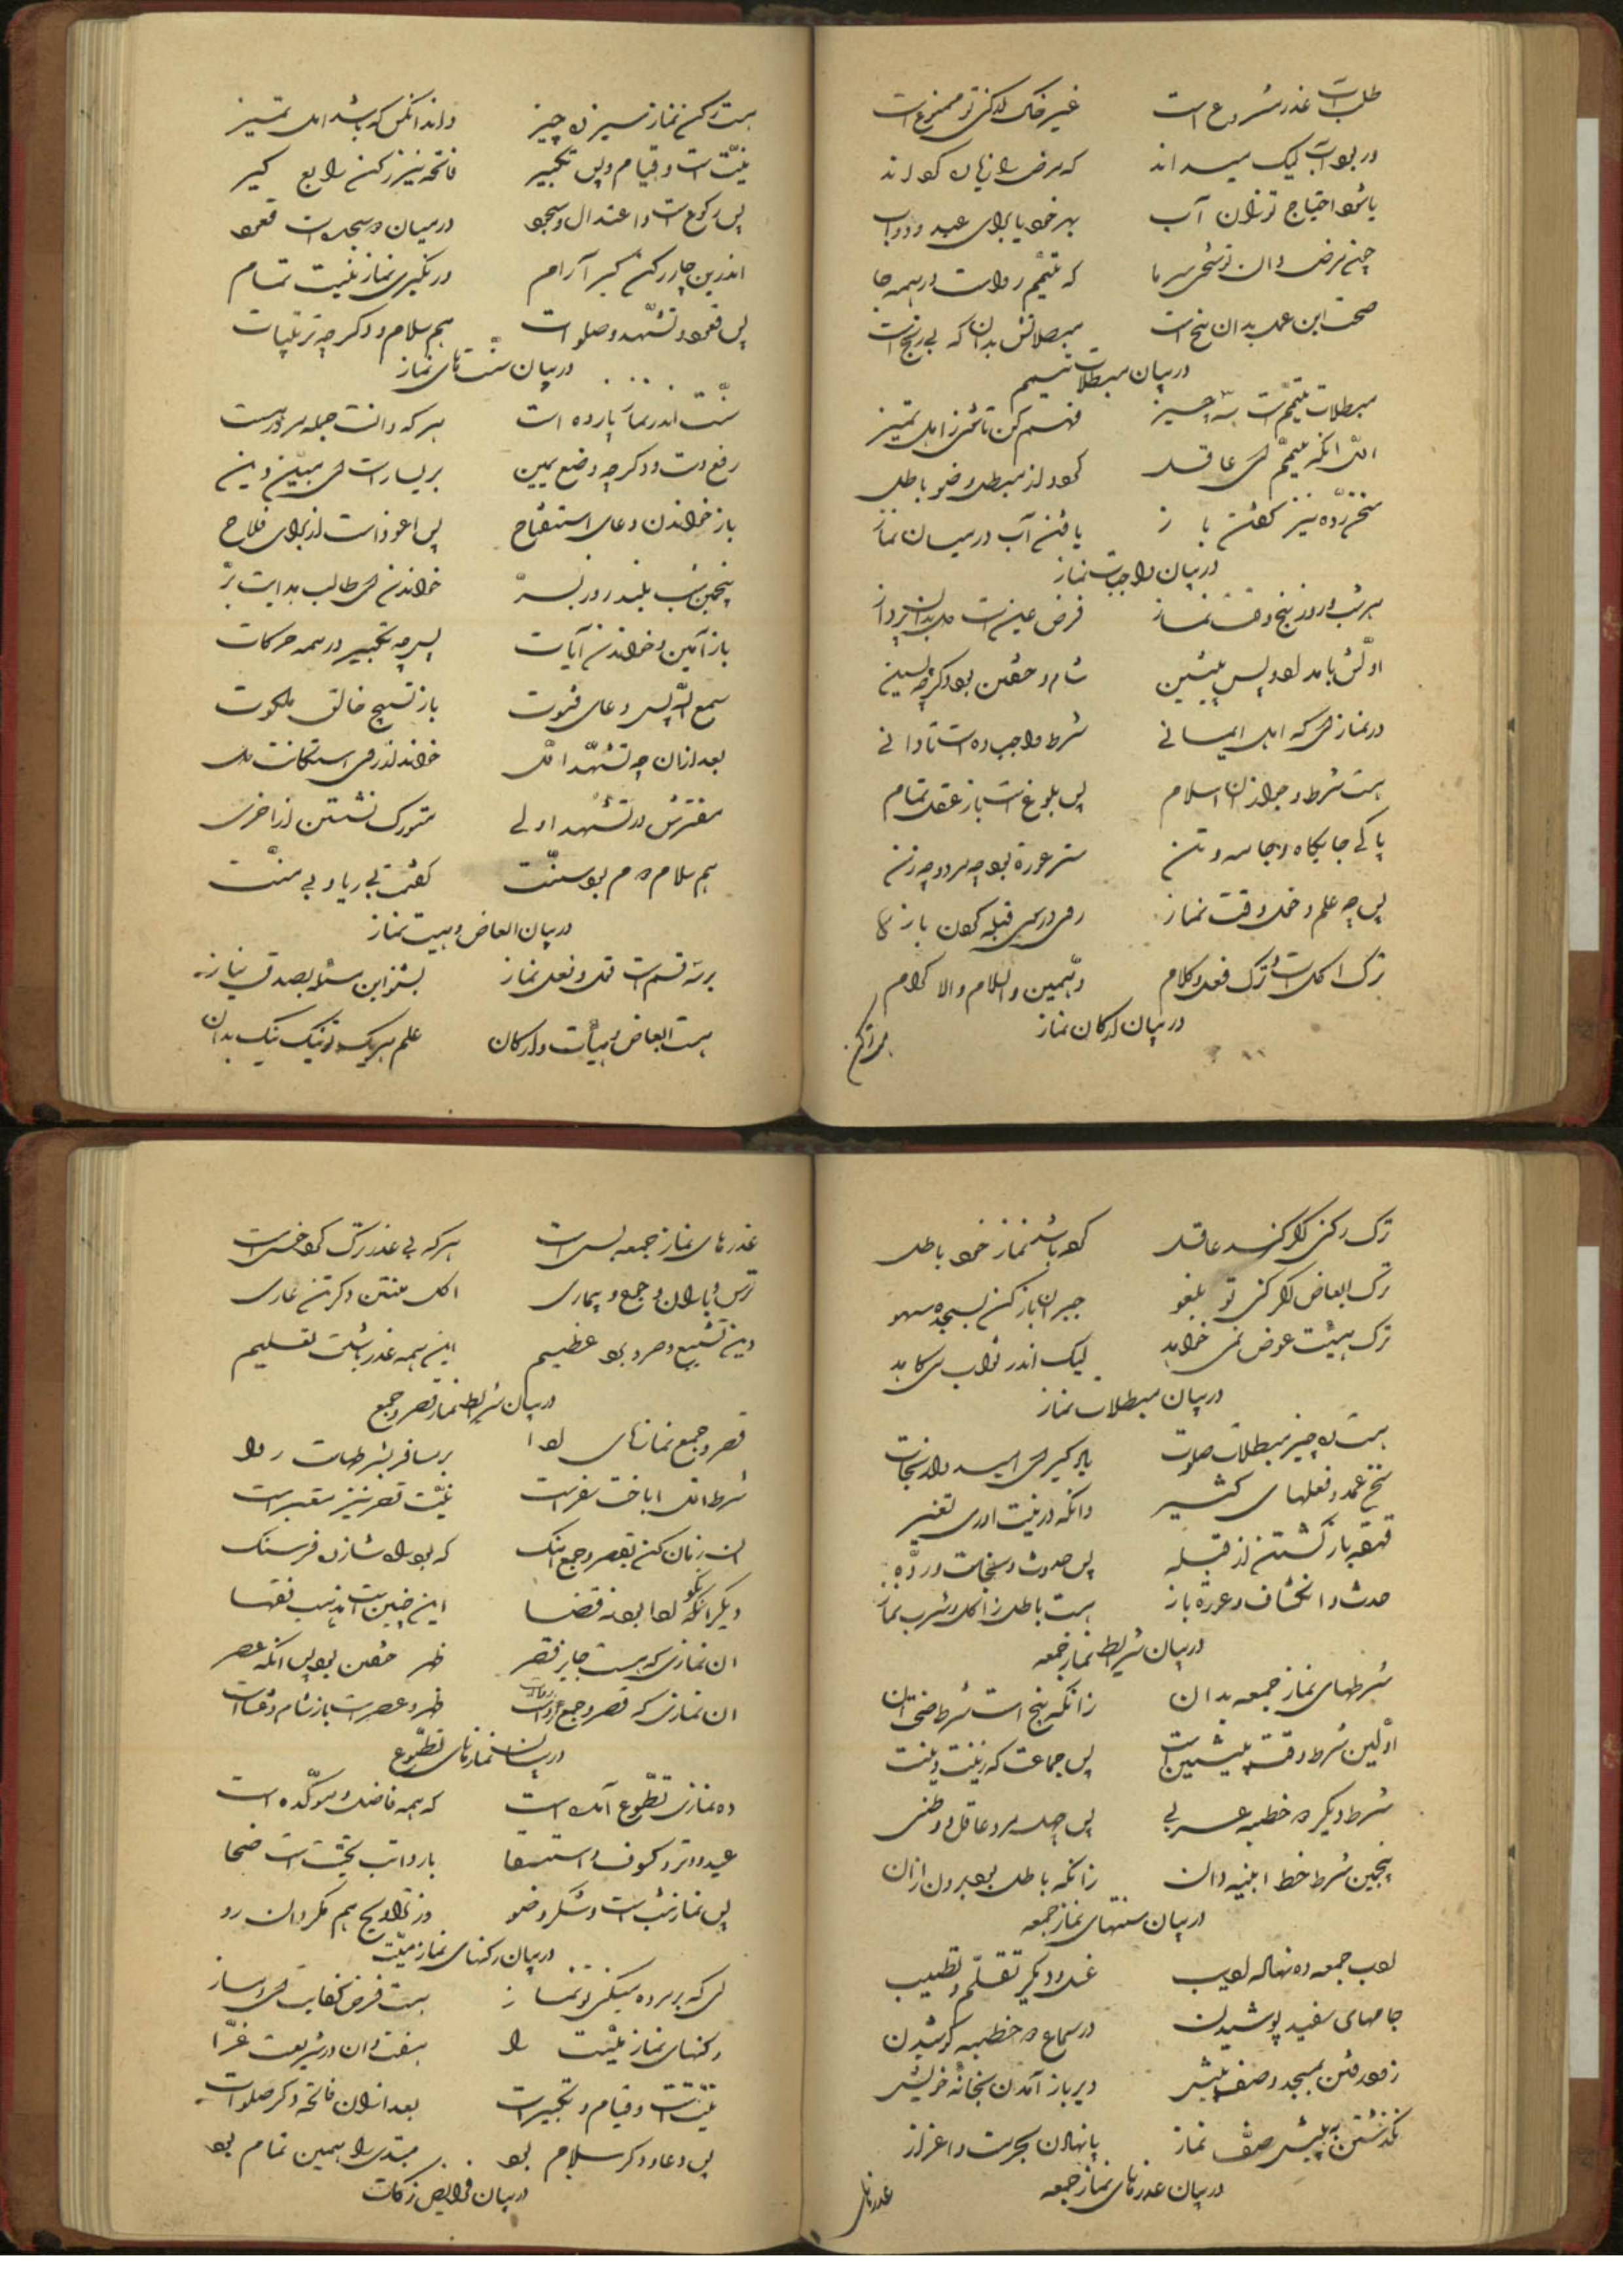 طلب آب عذر مشروع است غیر خاک ار کنی تو ممنوع است
در بود آب لیک میداند که مرض را زیان کو داند
باشد احتیاج تو زان آب بهر خود یا برای عبد و دواب
که تیمم رواست در همه جا
صحت این عمل بدان پنج است مبصلاتش بدان که بی رنج است
در بیان مبطلات تیمم
مبطلات تیمم است سه چیز فهم کن تا شوی ز اهل تمیز
اول آنکه تیمم ای عاقل کود از مبطل وضو باطل
یافتن آب در میان نماز
در بیان واجبات نماز
هر شب و روز پنج وقت نماز فرض عین است
اولش بامداد و پس پیشین شام و خفتن بود دگر چه پسین
در نمازی که اهل ایمانی شرط واجب ده است تا دانی
هست شرط وجوب آن اسلام پس بلوغ است باز عقل تمام
پاکی جایگاه و جامه و تن ستر عورة بود چه مرد و چه زن
پس چه علم دخول وقت نماز روی در سوی قبله کون باز
ترک اکل است و ترک فعل و کلام و همین والسلام والاکرام
در بیان ارکان نماز
هست رکن نماز سیزده چیز داند آنکس که باشد اهل تمیز
نیت است و قیام و پس تکبیر فاتحه نیز رکن رابع گیر
پس رکوع است و اعتدال و سجود در میان دو سجده است قعود
اندرین چار رکن گیر آرام در نگیری نماز نیست تمام
پس قعود و تشهد و صلوات هم سلام و دگر چه ترتیبات
در بیان سنت های نماز
سنت اندر نماز پازده است هر که دانست جمله مرد ره است
رفع دست و دگر چه وضع یمین بر یسار است ای مبین دین
باز خواندن دعای استفتاح پس اعوذ است از برای فلاح
پنجمین شب بلند و روز بسر خواندن ای طالب هدایت بر
باز آمین و خواندن آیات پس چه تکبیر در همه حرکات
سمع الله پس دعای قنوت باز تسبیح خالق ملکوت
بعد ازان چه تشهد اول
مفترش در تشهد اولی متورک نشستن از اخری
هم سلام دوم بود سنت گفتمت بی ریا و بی منت
در بیان ابعاض و هیئت نماز
بر سه قسم است قول و فعل نماز بشنو این مسئله بصدق نیاز
هست ابعاض و هیأت و ارکان علم هر یک تو نیک نیک بدان
ترک رکنی اگر کند عاقل کو باشد نماز خود باطل
ترک ابعاض اگر کنی تو بلغو جبر آن باز کن بسجده سهو
ترک هیئت عوض نمی خواهد لیک اندر ثواب می کاهد
در بیان مبطلات نماز
هست ده چیز مبطلات صلوت یاد گیر ای امیدوار نجات
نطق عمد و فعلهای کثیر وانکه در نیت آوری تغییر
قهقهه باز گشتن از قبله
حدث و انکشاف و عورة باز هست باطل ز اکل و شرب نماز
در بیان شرایط نماز جمعه
شرطهای نماز جمعه بدان زانکه پنج است شرط صحت آن
اولین شرط وقت پیشین است پس جماعت که زینت دین است
شرط دیگر دو خطبه عربی پس چهل مرد عاقل و وطنی
پنجمین شرط خط ابنیه دان زانکه باطل بود برون از آن
در بیان سنتهای نماز جمعه
ادب جمعه ده نهاد ادیب غسل و دیگر تقلم و تطییب
جامهای سفید پوشیدن در سماع دو خطبه کوشیدن
زود رفتن بمسجد و صف پیش دیر باز آمدن بخانه خویش
نگذشتن به پیش صف نماز پا نهادن بحرمت و اعزاز
در بیان عذرهای نماز جمعه
عذرهای
عذرهای نماز جمعه بس است هر که بی عذر ترک کرد خس است
ترس و باران و جمع و بیماری اکل منتن و گر تن عاری
این همه عذر باشدت تسلیم
در بیان شرایط نماز قصر و جمع
قصر و جمع نمازهای ادا بر مسافر بشرطهاست روا
شرط اول اباحت سفر است نیت قصر نیز معتبر است
آن زمان کن بقصر و جمع آهنگ که بود راه شانزده فرسنگ
دیگر آنکه ادا بود نه قضا این چنین است مذهب فقها
آن نمازی که هست جایز قصر ظهر خفتن بود پس آنکه عصر
آن نمازی که قصر و جمع رواست ظهر و عصر است باز شام و عشاست
در بیان نمازهای تطوع
ده نمازی تطوع آمده است که همه فاضل و مؤکده است
عید و وتر و کسوف و استسقا با رواتب تحیت است ضحا
پس نماز شب است و شکر وضو وز تراویح هم مگردان رو
در بیان رکنهای نماز میت
ای که بر مرده میکنی تو نماز هست فرض کفایت ای دمساز
رکنهای نماز میت را هفت دان در شریعت غرا
نیت است و قیام و تکبیر است بعد ازان فاتحه دگر صلوات
پس دعا و دگر سلام بود مبتدی را همین تمام بود
در بیان فرایض زکات